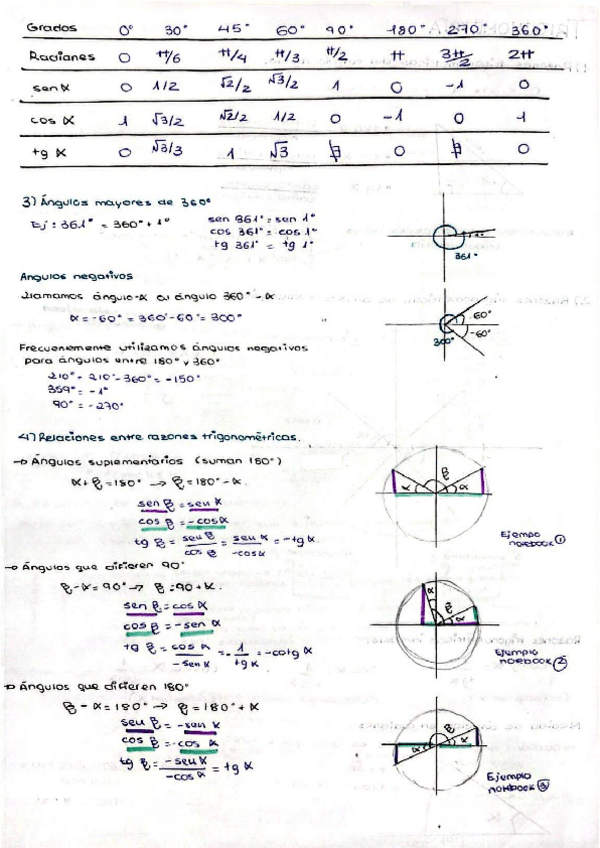 Grados 0° 30° 45° 60° 90° 180° 270° 360°
Radianes 0 π/6 π/4 π/3 π/2 π 3π/2 2π
sen α 0 1/2 √2/2 √3/2 1 0 -1 0
cos α 1 √3/2 √2/2 1/2 0 -1 0 1
tg α 0 √3/3 1 √3 ∄ 0 ∄ 0
3) Ángulos mayores de 360°
Ej: 361° = 360° + 1°
sen 361° = sen 1°
cos 361° = cos 1°
tg 361° = tg 1°
1°
361°
Angulos negativos
Llamamos ángulo -α al ángulo 360° - α
α = -60° = 360° - 60° = 300°
60°
-60°
300°
Frecuenemente utilizamos ángulos negativos
para ángulos entre 180° y 360°
210° - 210° - 360° = -150°
359° = -1°
90° = -270°
4) Relaciones entre razones trigonométricas.
→ Ángulos suplementarios (suman 180°)
α + β = 180° → β = 180° - α.
sen β = sen α
cos β = -cos α
tg β = sen β/cos β = sen α/-cos α = -tg α
α β α
Ejemplo
notebook ①
→ Ángulos que difieren 90°
β - α = 90° → β = 90 + α.
sen β = cos α
cos β = -sen α
tg β = cos α/-sen α = -1/tg α = -cotg α
α β α
Ejemplo
notebook ②
→ Ángulos que difieren 180°
β - α = 180° → β = 180° + α
sen β = -sen α
cos β = -cos α
tg β = -sen α/-cos α = tg α
α β α
Ejemplo
notebook ③